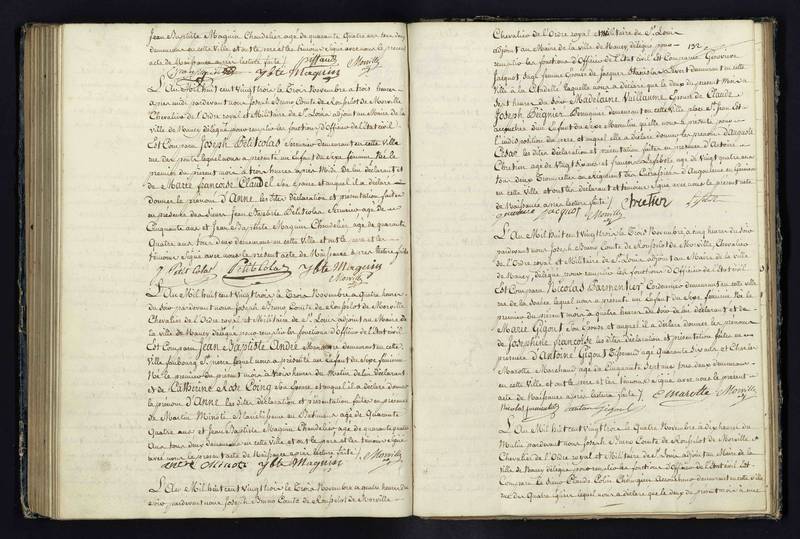 Jean Baptiste Maguin Chandelier agé de quarante quatre ans tous deux
demeurans en cette Ville et ont le pere et les temoins signé avec nous le présent
acte de Naissance après lecture faite
Morville
Jbte Maguin
L'An Mil huit cent Vingt trois le Trois Novembre a trois heures
après midi pardevant nous Joseph Bruno Comte de Ronfilot de Morville
Chevalier de l'Ordre royal et Militaire de St. Louis adjoint au Maire de la
ville de Nancy délégué pour remplir les fonctions d'Officier de l'Etat civil
Est Comparu Joseph Petitcolas Serrurier demeurant en cette Ville
rue lequel nous a présenté un Enfant du sexe féminin Né le
premier du présent mois à trois heures après Midi de lui déclarant et
de Marie françoise Claudel son Epouse et auquel il a déclaré
donner le prénom d'Anne les dites déclaration et présentation faites
en présence de Jean Baptiste Petitcolas Serrurier agé de
Cinquante ans et Jean Baptiste Maguin Chandelier agé de quarante
Quatre ans tous deux demeurans en cette Ville et ont le pere et les
temoins signé avec nous le présent acte de Naissance après lecture faite
J Petitcolas Petitcolas Jbte Maguin
Morville
L'An Mil huit cent Vingt trois le Trois Novembre a Quatre heures
du soir pardevant nous Joseph Bruno Comte de Ronfilot de Morville
Chevalier de l'Ordre royal et Militaire de St. Louis adjoint au Maire de
la ville de Nancy délégué pour remplir les fonctions d'Officier de l'Etat civil
Est Comparu Jean Baptiste André demeurant en cette
Ville faubourg St. pierre lequel nous a présenté un Enfant du sexe féminin
Né le premier du présent mois à trois heures du Matin de lui déclarant
et de Catherine Rose son Epouse et auquel il a déclaré donner
le prénom d'Anne les dites déclaration et présentation faites en présence
de Martin agé de Quarante
Quatre ans et Jean Baptiste Maguin Chandelier agé de quarante quatre
Ans tous deux demeurans en cette Ville et ont le pere et les temoins signé
avec nous le présent acte de Naissance après lecture faite Morville
Jbte Maguin
L'An Mil huit cent Vingt trois le Trois Novembre a quatre heures du
soir pardevant nous Joseph Bruno Comte de Ronfilot de Morville
Chevalier de l'Ordre royal et Militaire de St. Louis
adjoint au Maire de la ville de Nancy délégué pour 132
remplir les fonctions d'Officier de l'Etat civil est Comparue Genevieve
Jacquot Sage femme Epouse de Jacques demeurant en cette
Ville à la Citadelle laquelle nous a déclaré que le deux du présent mois à
sept heures du soir Madelaine Vuillaume Epouse de Claude
Joseph Beignier demeurant en cette Ville place St. Jean est
accouchée d'un Enfant du sexe Masculin qu'elle nous a présenté pour
l'indisposition du pere et auquel elle a déclaré donner les prénoms d'Auguste
César les dites déclaration et présentation faites en présence d'Antoine
Chretien agé de Vingt six ans et françois Lefebvre agé de Vingt quatre ans
tous deux en Garnison
en cette Ville et ont les déclarant et temoins signé avec nous le présent acte
de Naissance après lecture faite Cretier Lefebvre
genevieve jacquot Morville
L'An Mil huit cent Vingt trois le Trois Novembre a cinq heures du soir
pardevant nous Joseph Bruno Comte de Ronfilot de Morville Chevalier
de l'Ordre royal et Militaire de St. Louis adjoint au Maire de la ville
de Nancy délégué pour remplir les fonctions d'Officier de l'Etat civil
Est Comparu Nicolas Parmentier Cordonnier demeurant en cette ville
rue lequel nous a présenté un Enfant du sexe féminin Né le
premier du présent mois a quatre heures du soir de lui déclarant et de
Marie Gigout son Epouse et auquel il a déclaré donner les prénoms
de Josephine françoise les dites déclaration et présentation faites en
présence d'Antoine Gigout agé de quarante ans et Charles
Marotte Marchand agé de Cinquante sept ans tous deux demeurans
en cette Ville et ont le pere et les temoins signé avec nous le présent
acte de Naissance après lecture faite C marotte Morville
Nicolas parmentier gigout
L'An Mil huit cent Vingt trois le Quatre Novembre a dix heures du
Matin pardevant nous Joseph Bruno Comte de Ronfilot de Morville
Chevalier de l'Ordre royal et Militaire de St. Louis adjoint au Maire de la
ville de Nancy délégué pour remplir les fonctions d'Officier de l'Etat civil Est
Comparu le Sieur Claude Colin Chirurgien Accoucheur demeurant en cette ville
rue des Quatre églises lequel nous a déclaré que le deux du présent mois a onze